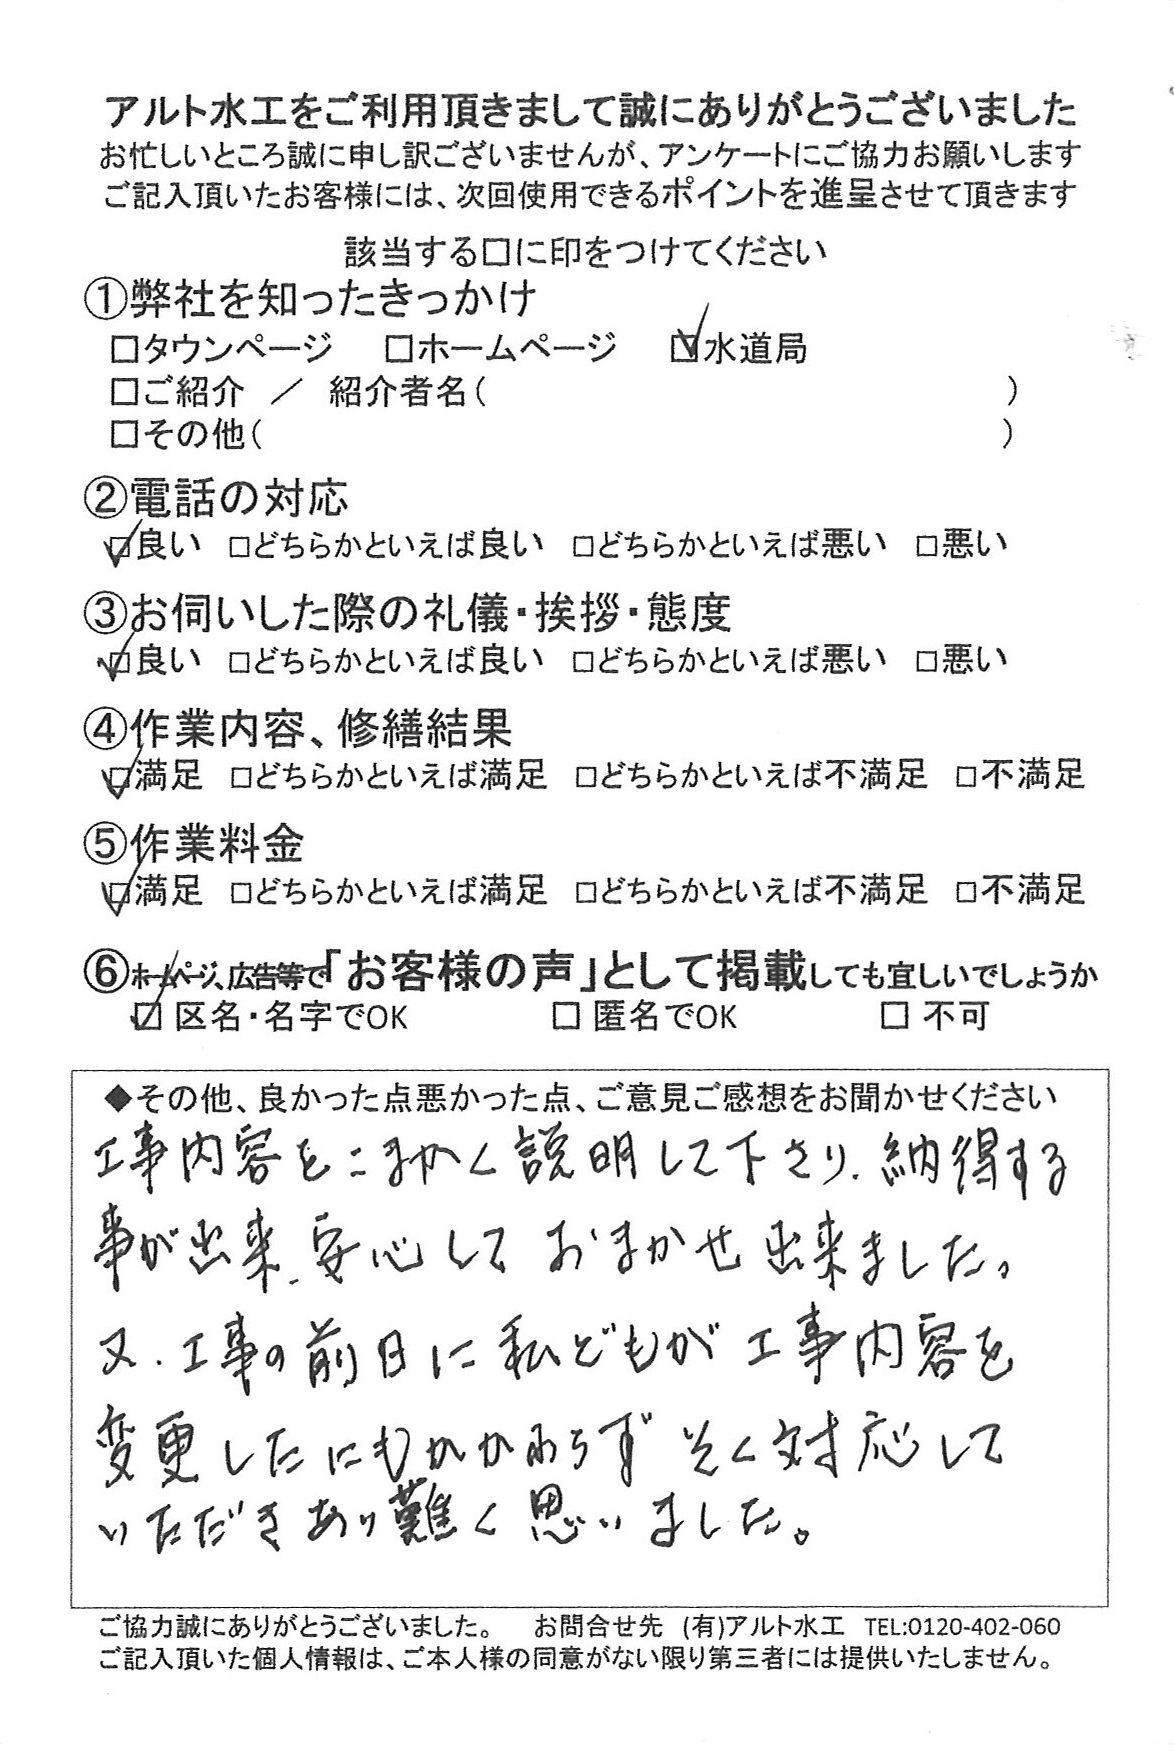 アルト水工をご利用頂きまして誠にありがとうございました
お忙しいところ誠に申し訳ございませんが、アンケートにご協力お願いします
ご記入頂いたお客様には、次回使用できるポイントを進呈させて頂きます
該当する□に印をつけてください
①弊社を知ったきっかけ
□タウンページ □ホームページ ☑水道局
□ご紹介 ／ 紹介者名( )
□その他( )
②電話の対応
☑良い □どちらかといえば良い □どちらかといえば悪い □悪い
③お伺いした際の礼儀・挨拶・態度
☑良い □どちらかといえば良い □どちらかといえば悪い □悪い
④作業内容、修繕結果
☑満足 □どちらかといえば満足 □どちらかといえば不満足 □不満足
⑤作業料金
☑満足 □どちらかといえば満足 □どちらかといえば不満足 □不満足
⑥ホームページ、広告等で「お客様の声」として掲載しても宜しいでしょうか
☑区名・名字でOK □ 匿名でOK □ 不可
◆その他、良かった点悪かった点、ご意見ご感想をお聞かせください
工事内容をこまかく説明して下さり、納得する
事が出来、安心して おまかせ出来ました。
又、工事の前日に私どもが工事内容を
変更したにもかかわらず 対応して
いただきあり難く思いました。
ご協力誠にありがとうございました。 お問合せ先 (有)アルト水工 TEL:0120-402-060
ご記入頂いた個人情報は、ご本人様の同意がない限り第三者には提供いたしません。